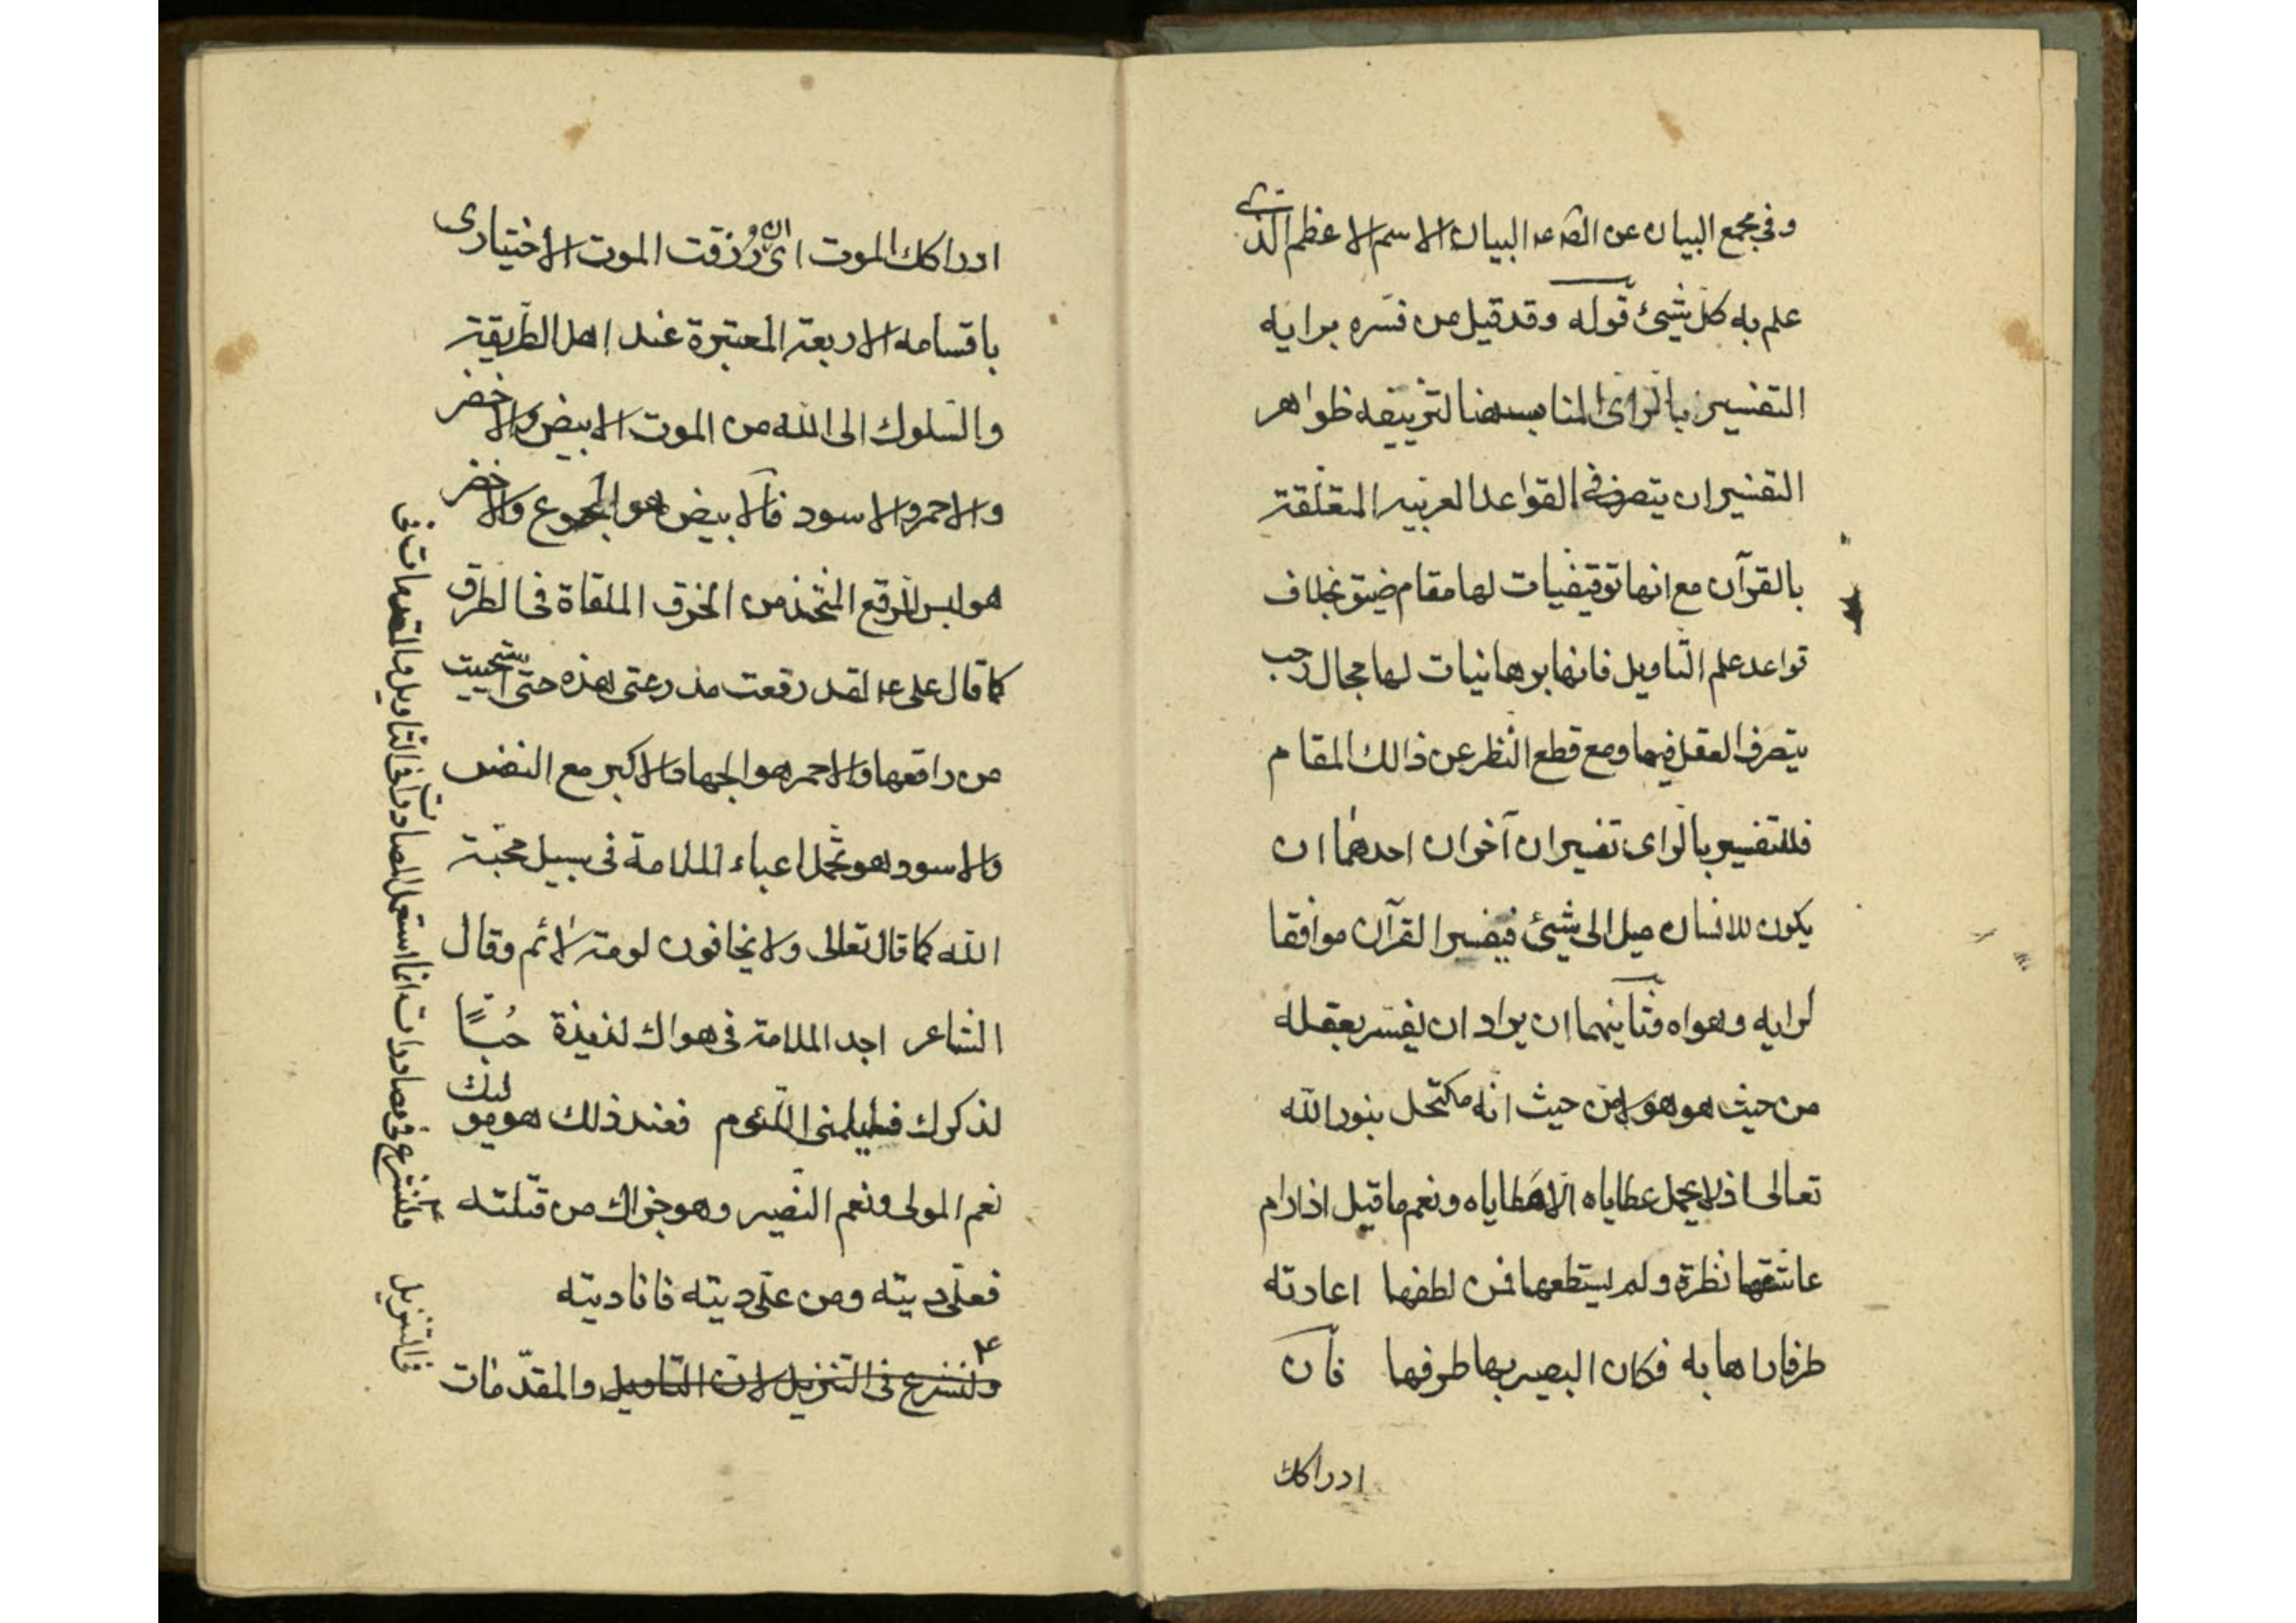 وفی مجمع البیان عن الصّه ع البیان الاسم الاعظم الذی
علم به کلّ شیئ قوله وقد قیل من فسّره برایه
التفسیر بالرای المناسب هنا لتزییفه ظواهر
التفسیر ان یتصرف فی القواعد العربیه المتعلّقة
بالقرآن مع انها توقیفیات لها مقام ضیّق بخلاف
قواعد علم التّاویل فانها برهانیات لها مجال رحب
یتصرف العقل فیها ومع قطع النّظر عن ذالك المقام
فللتفسیر بالرای تفسیران آخران احدهما ان
یکون للانسان میل الی شیئ فیفسر القرآن موافقا
لرایه وهواه وثانیهما ان یراد ان یفسّر بعقله
من حیث هو هو لا من حیث انّه مکتحل بنور الله
تعالی اذ لا یحمل عطایاه الا مطایاه ونعم ما قیل اذا رام
عاشقها نظرة ولم یستطعها فمن لطفها اعارته
طرفا راها به فکان البصیر بها طرفها فان
ادراکك
ادراکك الموت ای رزقت الموت الاختیاری
باقسامه الاربعة المعتبرة عند اهل الطّریقة
والسّلوك الی الله من الموت الابیض والاخضر
والاحمر والاسود فالابیض هو الجوع والاخضر
هو لبس المرقع المتّخذ من الخرق الملقاة فی الطرق
کما قال علی ع لقد رقعت مدرعتی هذه حتّی استحییت
من راقعها والاحمر هو الجهاد الاکبر مع النفس
والاسود هو تحمّل اعباء الملامة فی سبیل محبّة
الله کما قال تعالی ولا یخافون لومة لائم وقال
الشاعر اجد الملامة فی هواك لذیذة حُبّاً
لذکرك فلیلمنی اللّوم فعند ذلك هو مولیك
نعم المولی ونعم النّصیر وهو جزاك من قتلته
فعلیّ دیته ومن علیّ دیته فانا دیته
ولنشرع فی التنزیل لانّ التّاویل والمقدّمات
ولنشرع فی مصادرات انما استعمل المصادرات فی التاویل والمقدمات فی
فی التنزیل